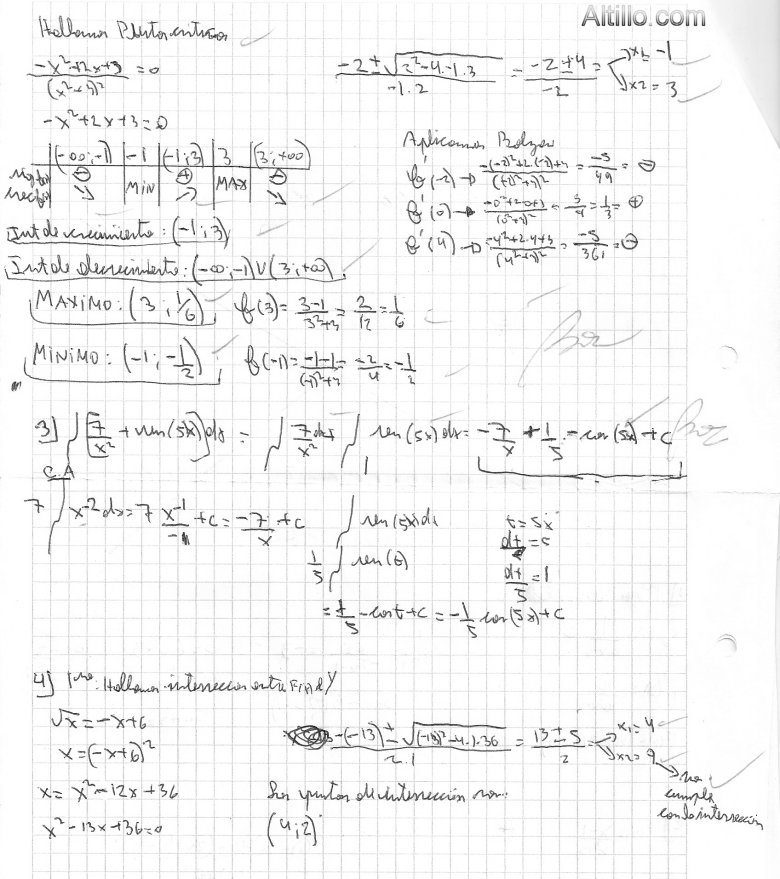 Altillo.com
Hallamos Puntos críticos
-x²+2x+3 / (x²+3)² = 0
-x²+2x+3=0
-2 ± √(2²-4.-1.3) / -1.2 = -2±4 / -2 = x1 = -1
x2 = 3
(-∞;-1) | -1 | (-1;3) | 3 | (3;+∞)
⊖ | MIN | ⊕ | MAX | ⊖
↘ ↗ ↘
Aplicamos Bolzano
f'(-2) → -(-2)²+2.(-2)+3 / ((-2)²+3)² = -5/49 = ⊖
f'(0) → -0²+2.0+3 / (0²+3)² = 3/9 = 1/3 = ⊕
f'(4) → -4²+2.4+3 / (4²+3)² = -5/361 = ⊖
Int de crecimiento: (-1;3)
Int de decrecimiento: (-∞;-1)∪(3;+∞)
MAXIMO: (3; 1/6) f(3) = 3-1 / 3²+3 = 2/12 = 1/6
MINIMO: (-1; -1/2) f(-1) = -1-1 / (-1)²+3 = -2/4 = -1/2
3] ∫[7/x² + sen(5x)]dx = ∫7dx/x² ∫ sen(5x)dx = -7/x + 1/5 . -cos(5x) + c
C.A
7 ∫x⁻²dx = 7 x⁻¹/-1 + c = -7/x + c
∫ sen(5x)dx
t = 5x
dt = 5
1/5 ∫ sen(t)
dt/5 = 1
= 1/5 -cos t + c = -1/5 cos(5x) + c
4] 1ro. Hallamos interseccion entre F(x) e Y
√x = -x+6
x = (-x+6)²
x = x² - 12x + 36
x² - 13x + 36 = 0
-(-13) ± √((-13)²-4.1.36) / 2.1 = 13±5 / 2 = x1 = 4
x2 = 9 → no cumple con la intersección
Los puntos de intersección son:
(4;2)